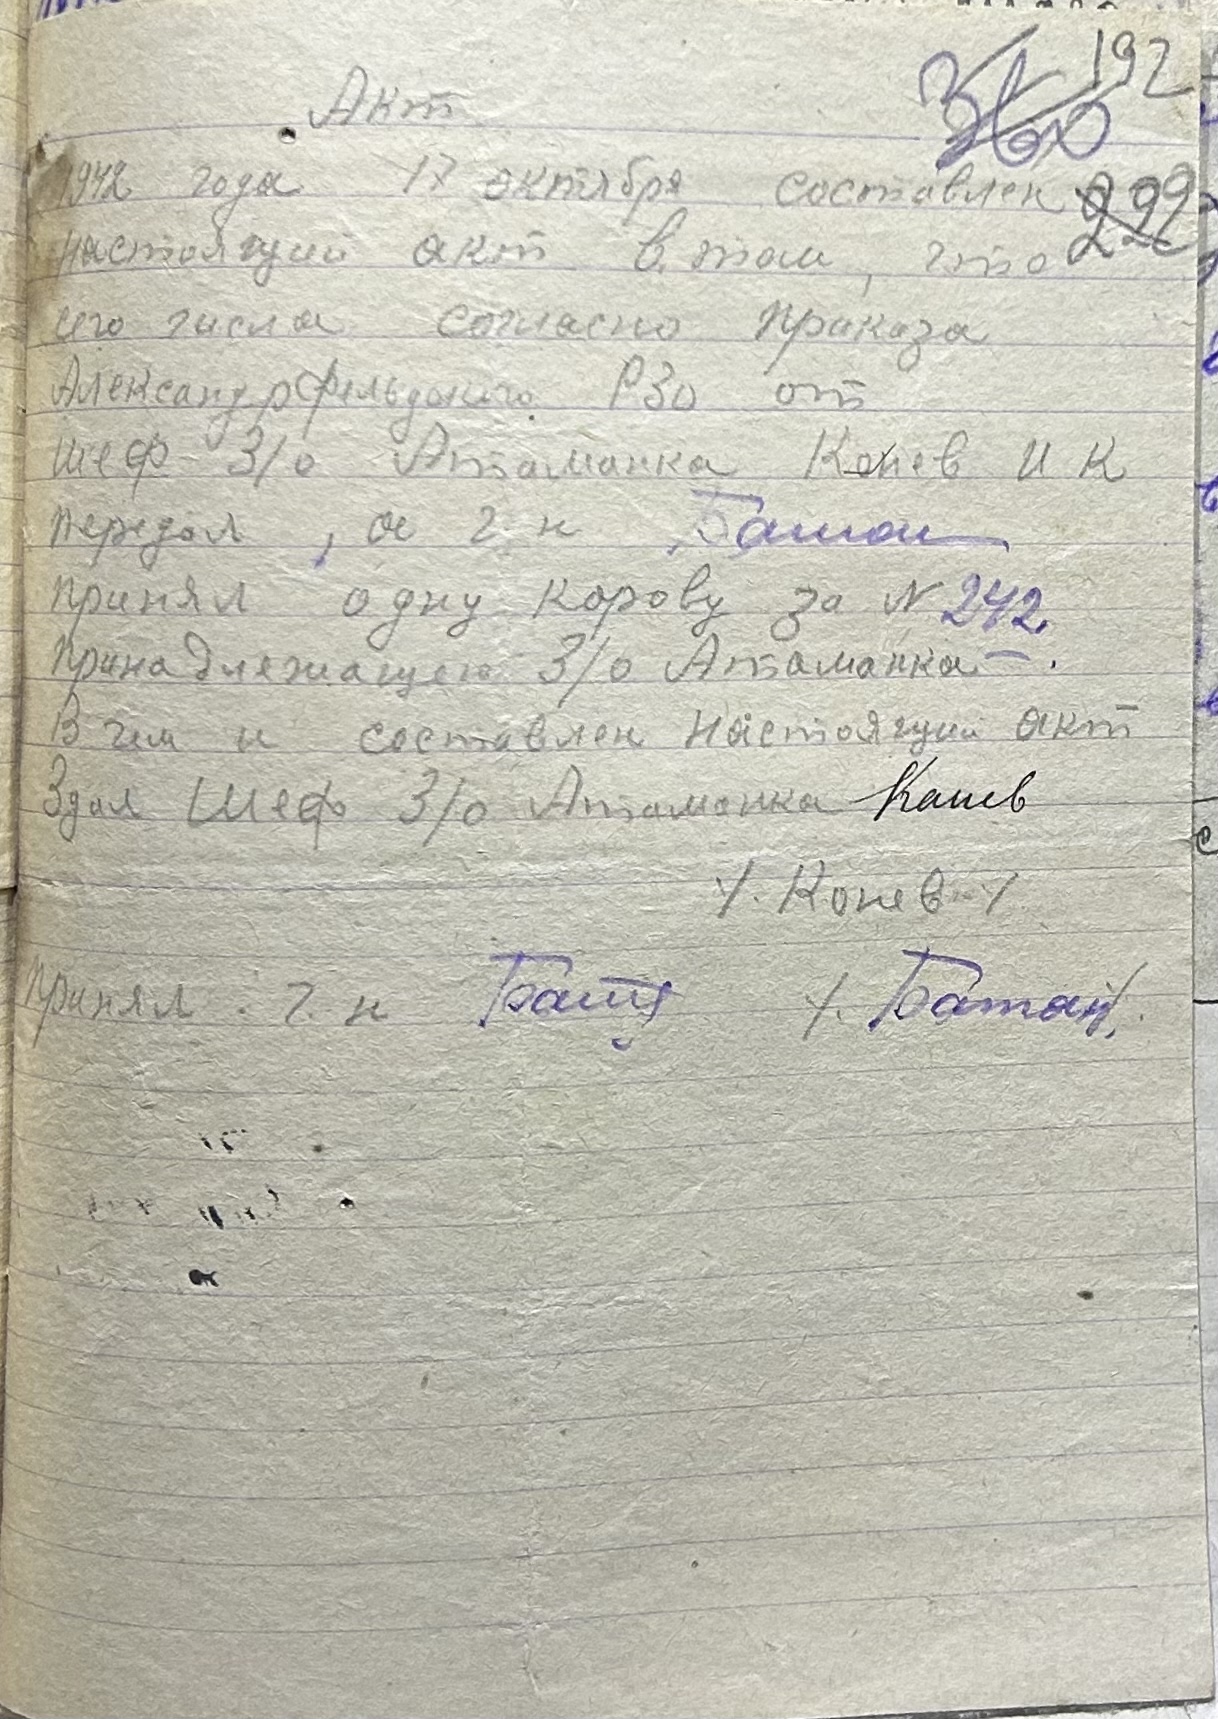 192
360
292
Акт
1942 года 17 октября составлен
настоящий акт в том, что
сего числа согласно приказа
Александрфельдского РЗО от
Шеф З/о Атаманка Конев И К
передал, а г-н
принял одну корову за № 242
принадлежащею З/о Атаманка - .
В чем и составлен настоящий акт
Здал Шеф З/о Атаманка Конев
/. Конев /
Принял. г н